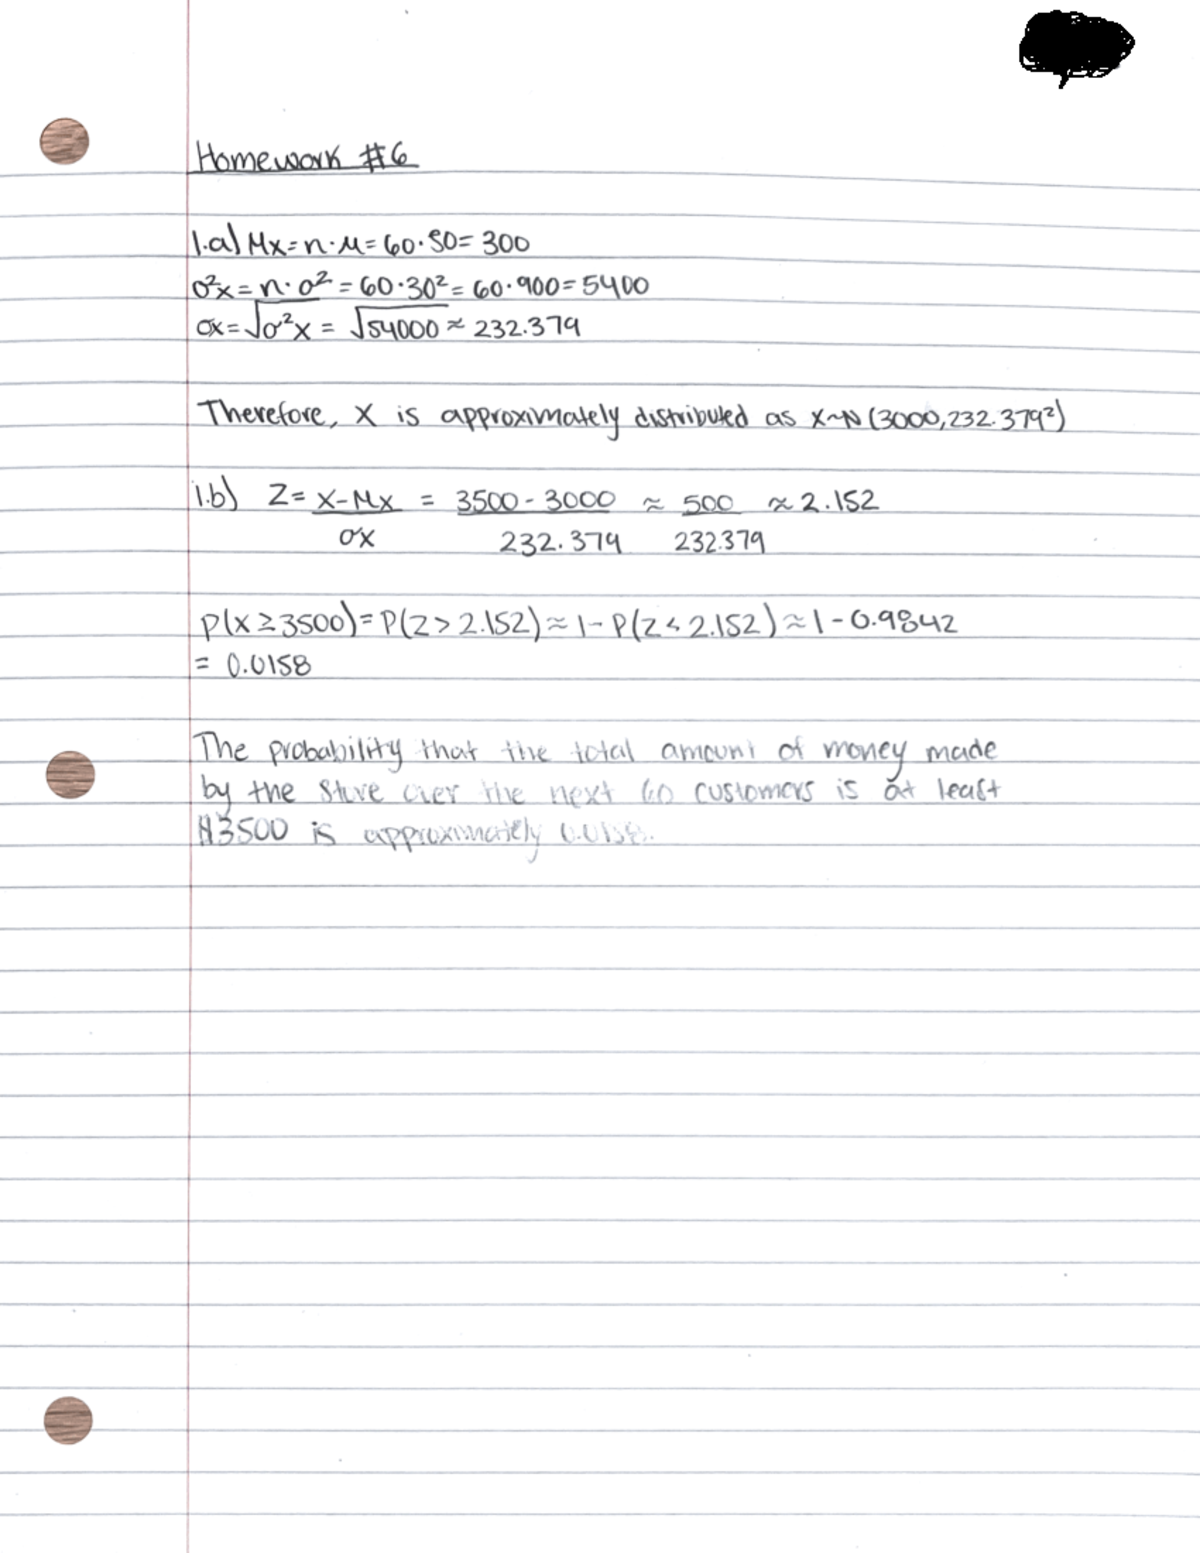 Homework #6
1.a) Mx = n·μ = 60·50 = 300
σ²x = n·σ² = 60·30² = 60·900 = 5400
σx = √σ²x = √54000 ≈ 232.379
Therefore, X is approximately distributed as X~N(3000, 232.379²)
1.b) Z = X-Mx = 3500-3000 ≈ 500 ≈ 2.152
σx 232.379 232.379
P(X ≥ 3500) = P(Z > 2.152) ≈ 1- P(Z < 2.152) ≈ 1-0.9842
= 0.0158
The probability that the total amount of money made
by the store over the next 60 customers is at least
$3500 is approximately 0.0158.